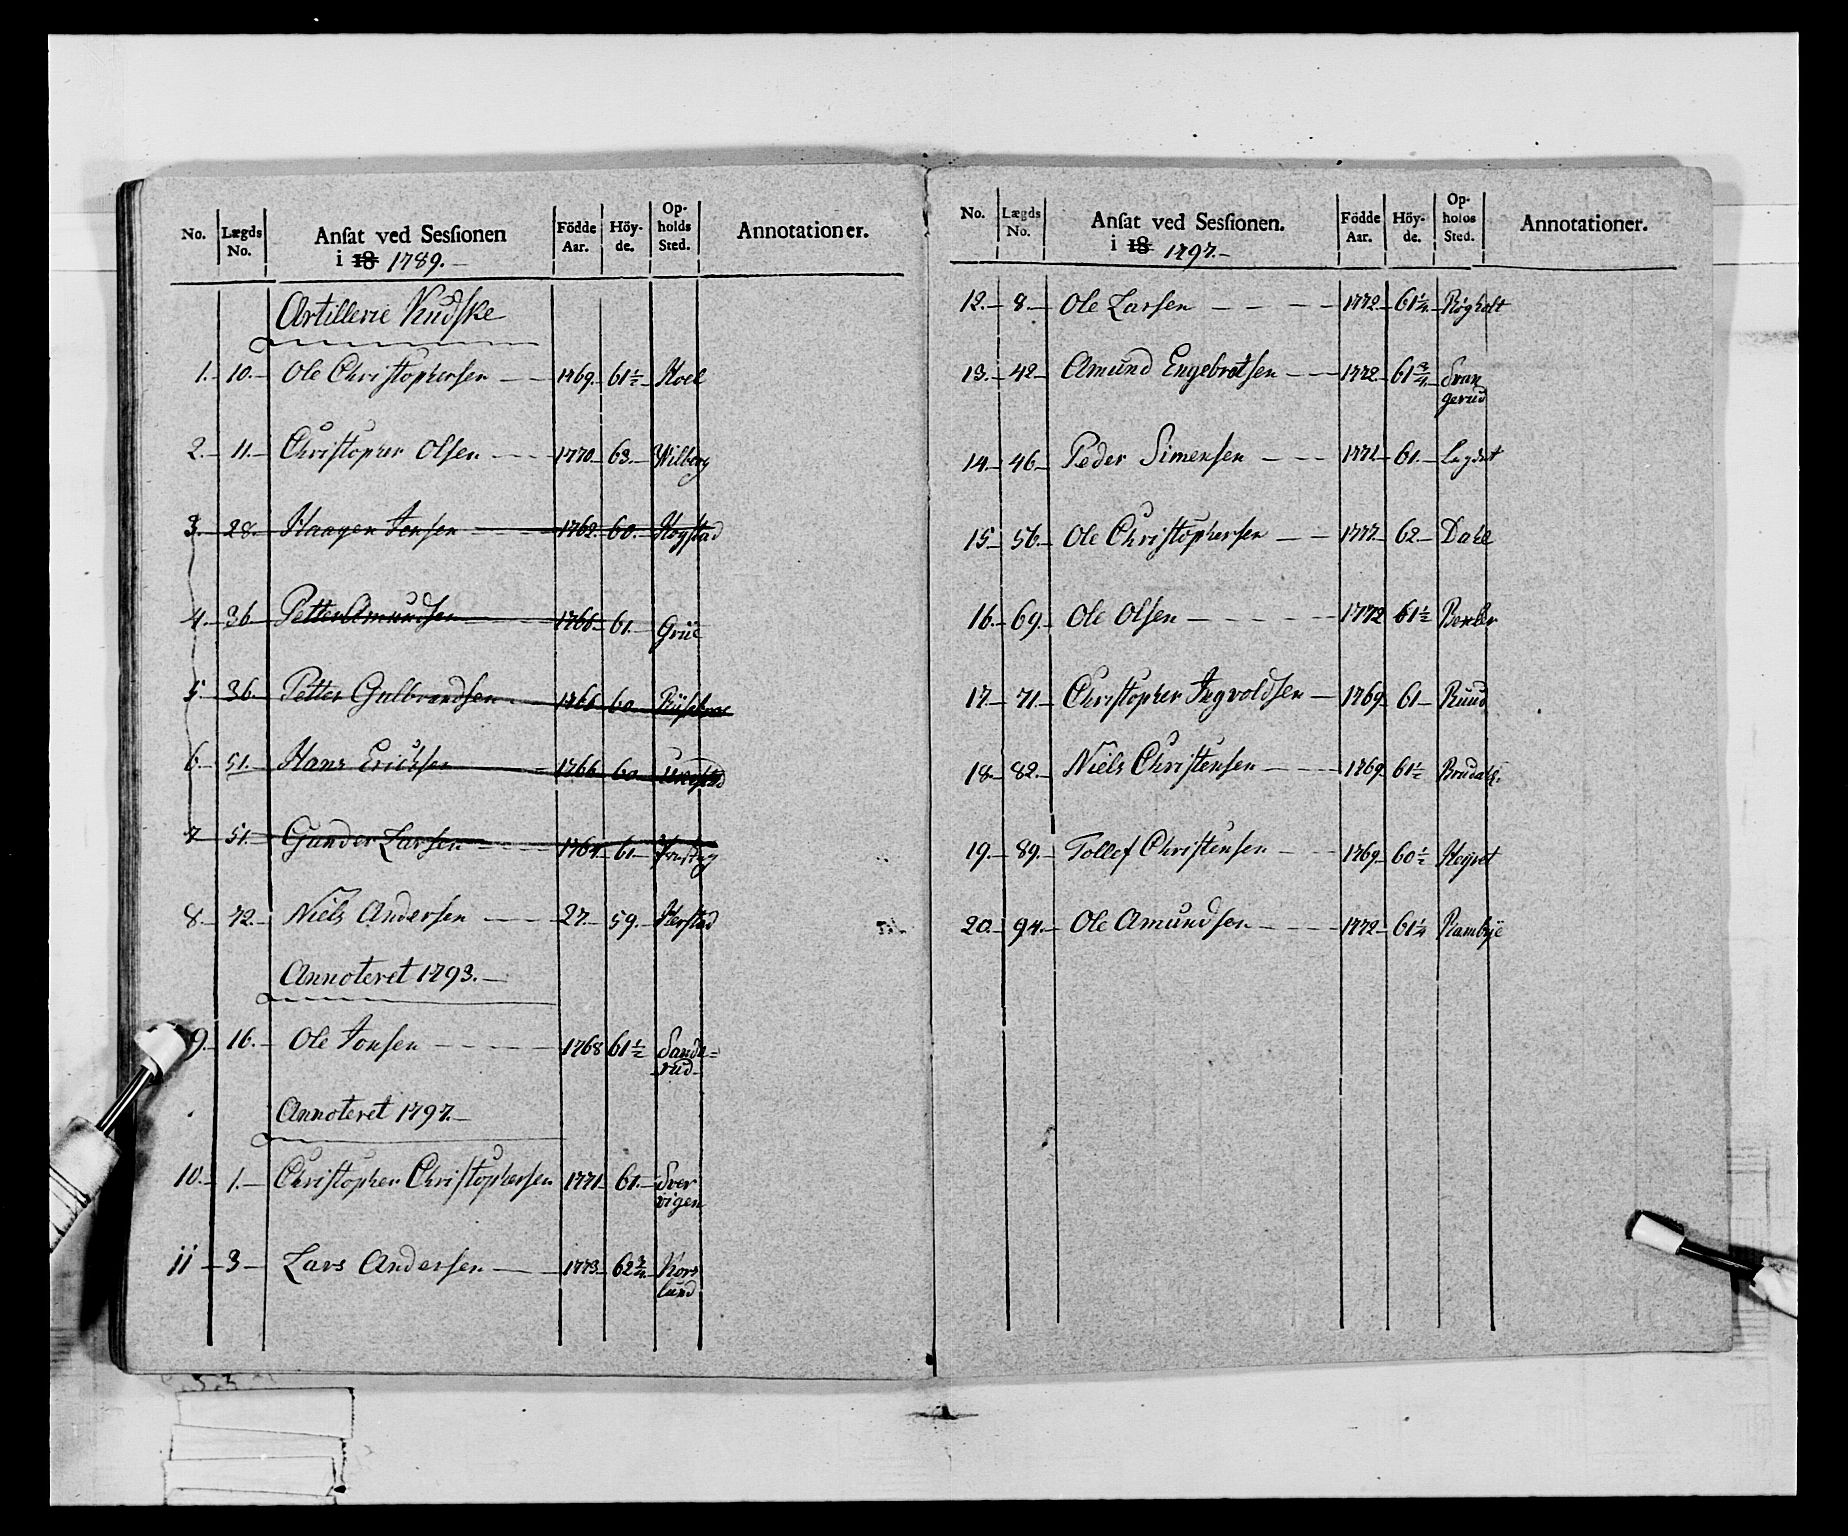 No. Lægds No. Ansat ved Sessionen i 18 1789.- Födde Aar. Höyde. Opholds Sted. Annotationer.
Artillerie Kudske
1. 10. Ole Christophersen 1769. 61 1/2 Hoel
2. 11. Christopher Olsen 1770. 63. Wilberg
3. 28. Haagen Jensen 1762. 60. Hogstad
4. 36 Petter Amundsen 1766 61. Grüe
5. 36. Petter Gulbrandsen 1766 60.
6. 51. Hans Erichsen 1766 60
7 51. Gunder Larsen 1764 61
8. 72. Niels Andersen 27. 59. Herstad
Annoteret 1793.
9. 16. Ole Jonsen 1768 61 1/2 Sande=
rud
Annoteret 1797.
10. 1. Christopher Christophersen 1771 61. Sver
vigen
11 3 Lars Andersen 1773 62 3/4 Kors
lund
No. Lægds No. Ansat ved Sessionen. i 18 1797.- Födde Aar. Höyde. Opholds Sted. Annotationer.
12. 8. Ole Larsen 1772 61 1/4 Røgholt
13. 42 Amund Engebretsen 1772 61 3/4 Svan
gerud
14. 46. Peder Simensen 1771 61.
15. 56. Ole Christophersen 1777. 62. Dahl
16. 69. Ole Olsen 1772 61 1/2
17. 71. Christopher Ingvoldsen 1769 61 Ruud
18 82. Niels Christensen 1769 61 1/2
19. 89. Tollef Christensen 1769 60 1/2
20. 94. Ole Amundsen 1772 61 1/4 Rambÿe